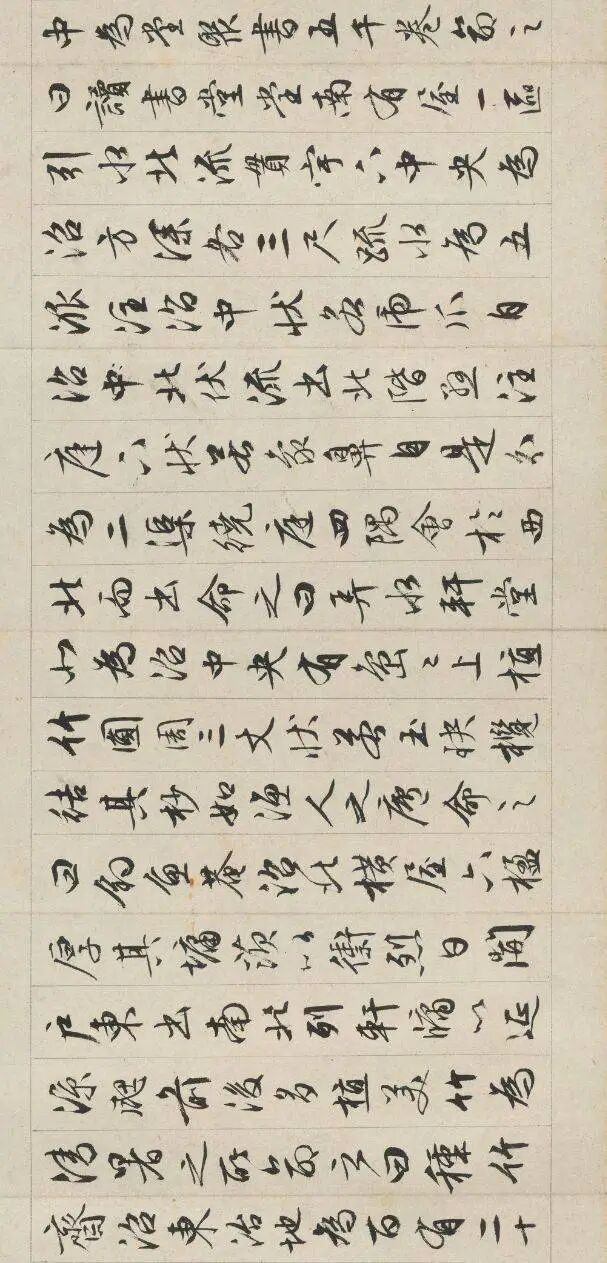 中為堂聚書五千卷命之
曰讀書堂堂南有屋一區
引水北流貫宇下中央為
沼方深各三尺疏水為五
派注沼中狀若虎爪自
沼中北伏流出北階懸注
庭下狀若象鼻自是分
為二渠繞庭四隅會於西
北而出命之曰弄水軒堂
北為沼中央有島〻上植
竹圓周三丈狀若玉玦攬
結其杪如漁人之廬命之
曰釣魚菴沼北橫屋六楹
厚其墉茨以禦烈日開
戶東出南北列軒牖以延
涼颸前後多植美竹為
清暑之所命之曰種竹
齋沼東治地為百有二十